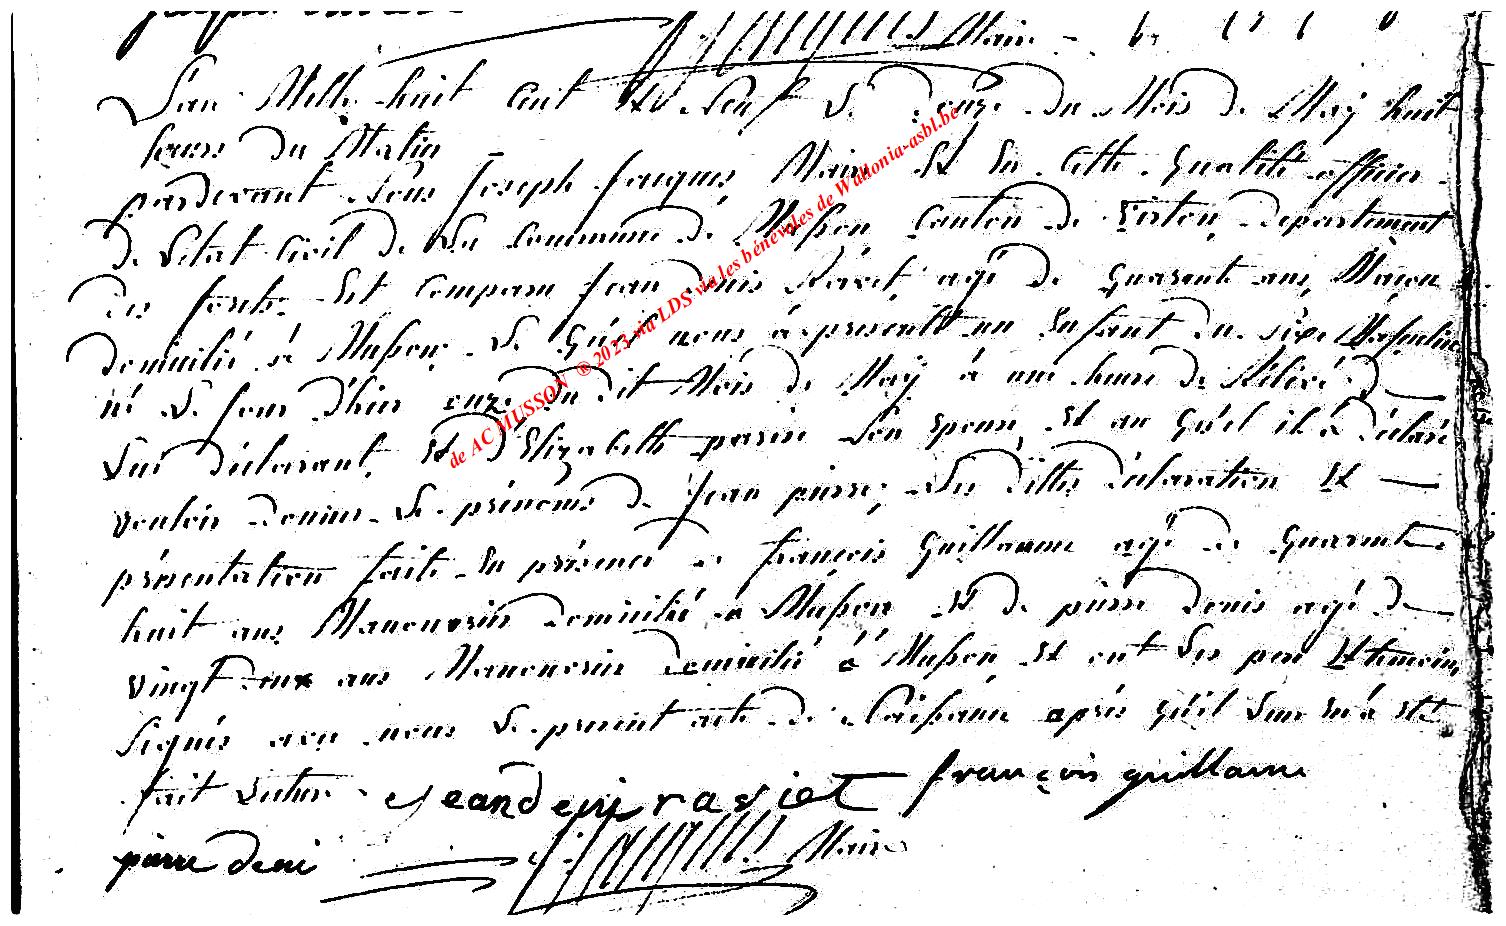 Maire
L'an Mille huit cent dix neuf Le douze du Mois de May huit
heures du Matin
pardevant Nous Joseph Jacques Maire Et En Cette qualité officier
de L'état Civil de La Commune de Musson Canton de Virton, departement
des forets Est Comparu Jean denis agé de quarente ans, Maçon
domicilié à Musson, Le quel nous à présenté un Enfant du sexe Masculin
né Le jour d'hier onze du dit Mois de May à une heure de Relivé de
Lui déclarant, Et d'Elizabeth parin Son epouse, Et au quel il à déclaré
vouloir donner Les prénoms de Jean pierre, Les dittes déclaration Et
présentation faite En présence de françois Guillaume agé de quarente
huit ans Manouvrier domicilié à Musson Et de pierre denis agé de
vingt deux ans Manouvrier domicilié à Musson Et ont Les pere Et temoins
signés avec nous Le présent acte de Naissance après qu'il Leur En à eté
fait Lecture
jean denis raviet françois guillaume
pierre deni Maire
de AC MUSSON ® 2023 via LDS via les bénévoles de Wallonia-asbl.be